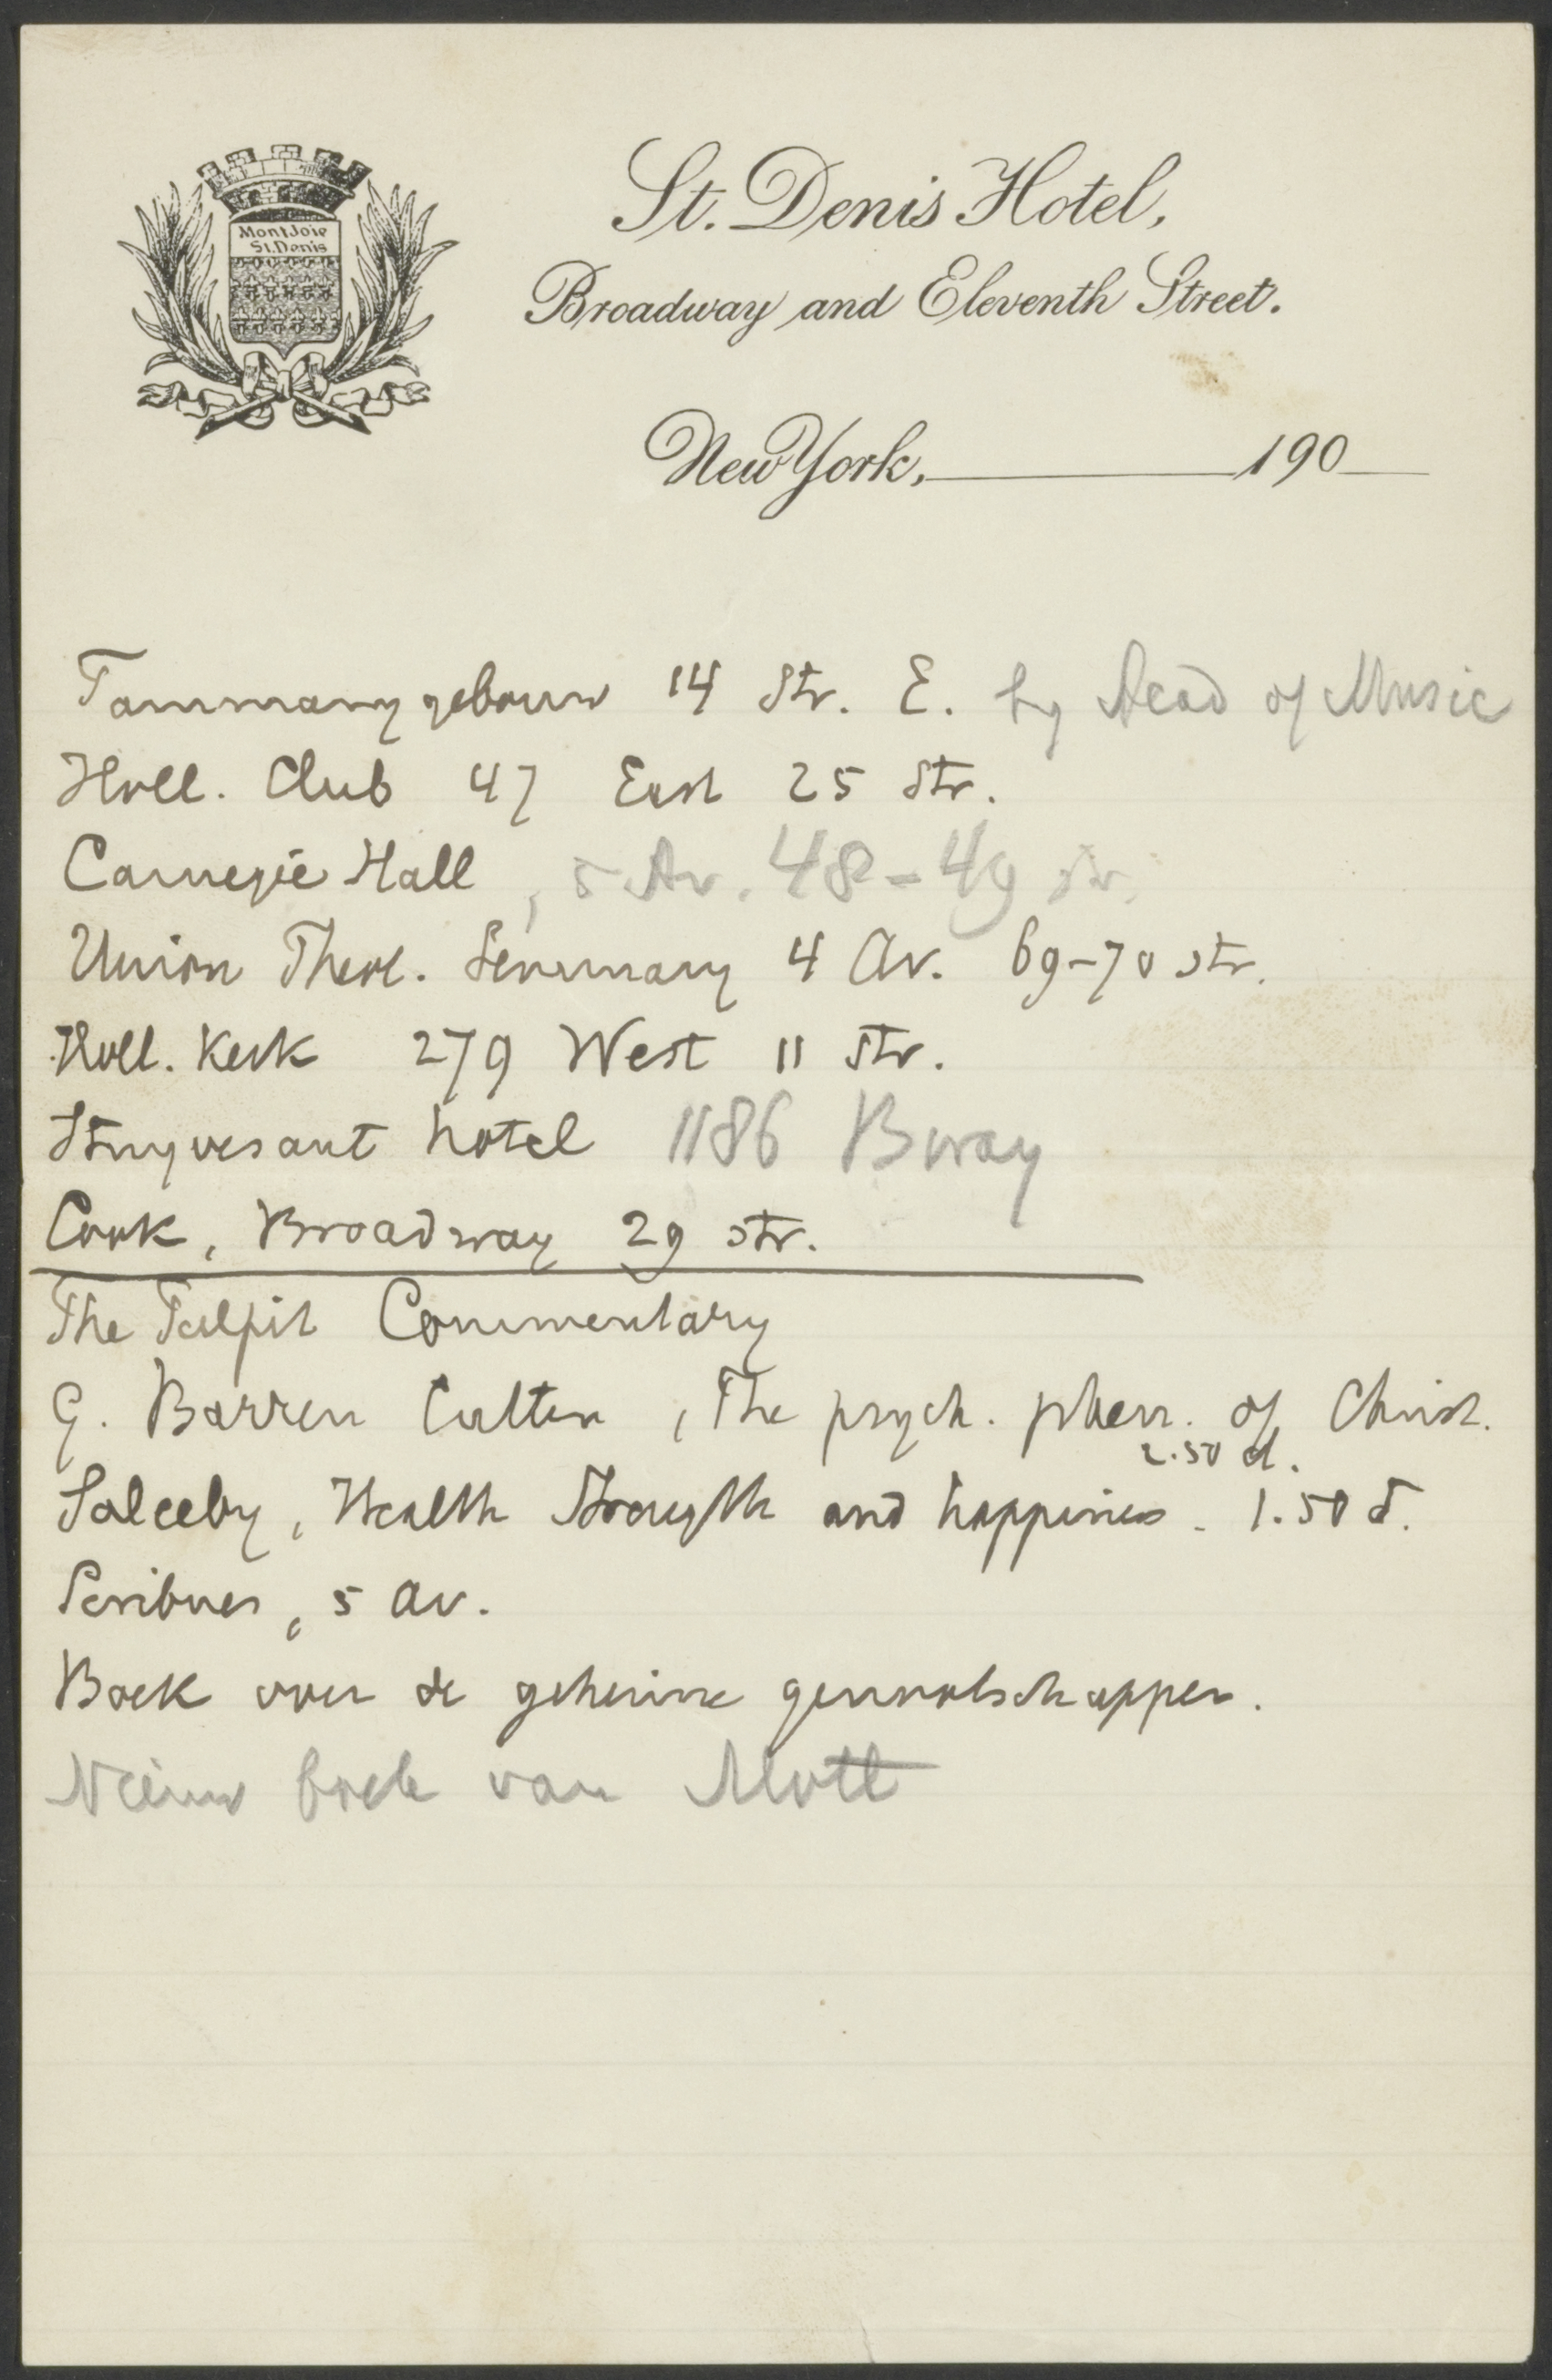 MontJoie
St.Denis
St. Denis Hotel,
Broadway and Eleventh Street.
New York, 190
Tammany gebouw 14 Str. E. by Acad of Music
Holl. Club 47 East 25 Str.
Carnegie Hall, 5 Av. 48-49 str.
Union Theol. Seminary 4 Av. 69-70 str.
Holl. Kerk 279 West 11 Str.
Stuyvesant hotel 1186 Bway
Cook, Broadway 29 str.
The Pulpit Commentary
G. Barren Cutten, The psych. phen. of Christ.
2.50 d.
Saleeby, Health Strength and happiness. 1.50 d.
Scribner, 5 Av.
Boek over de geheime genootschappen.
Nieuw boek van Mott